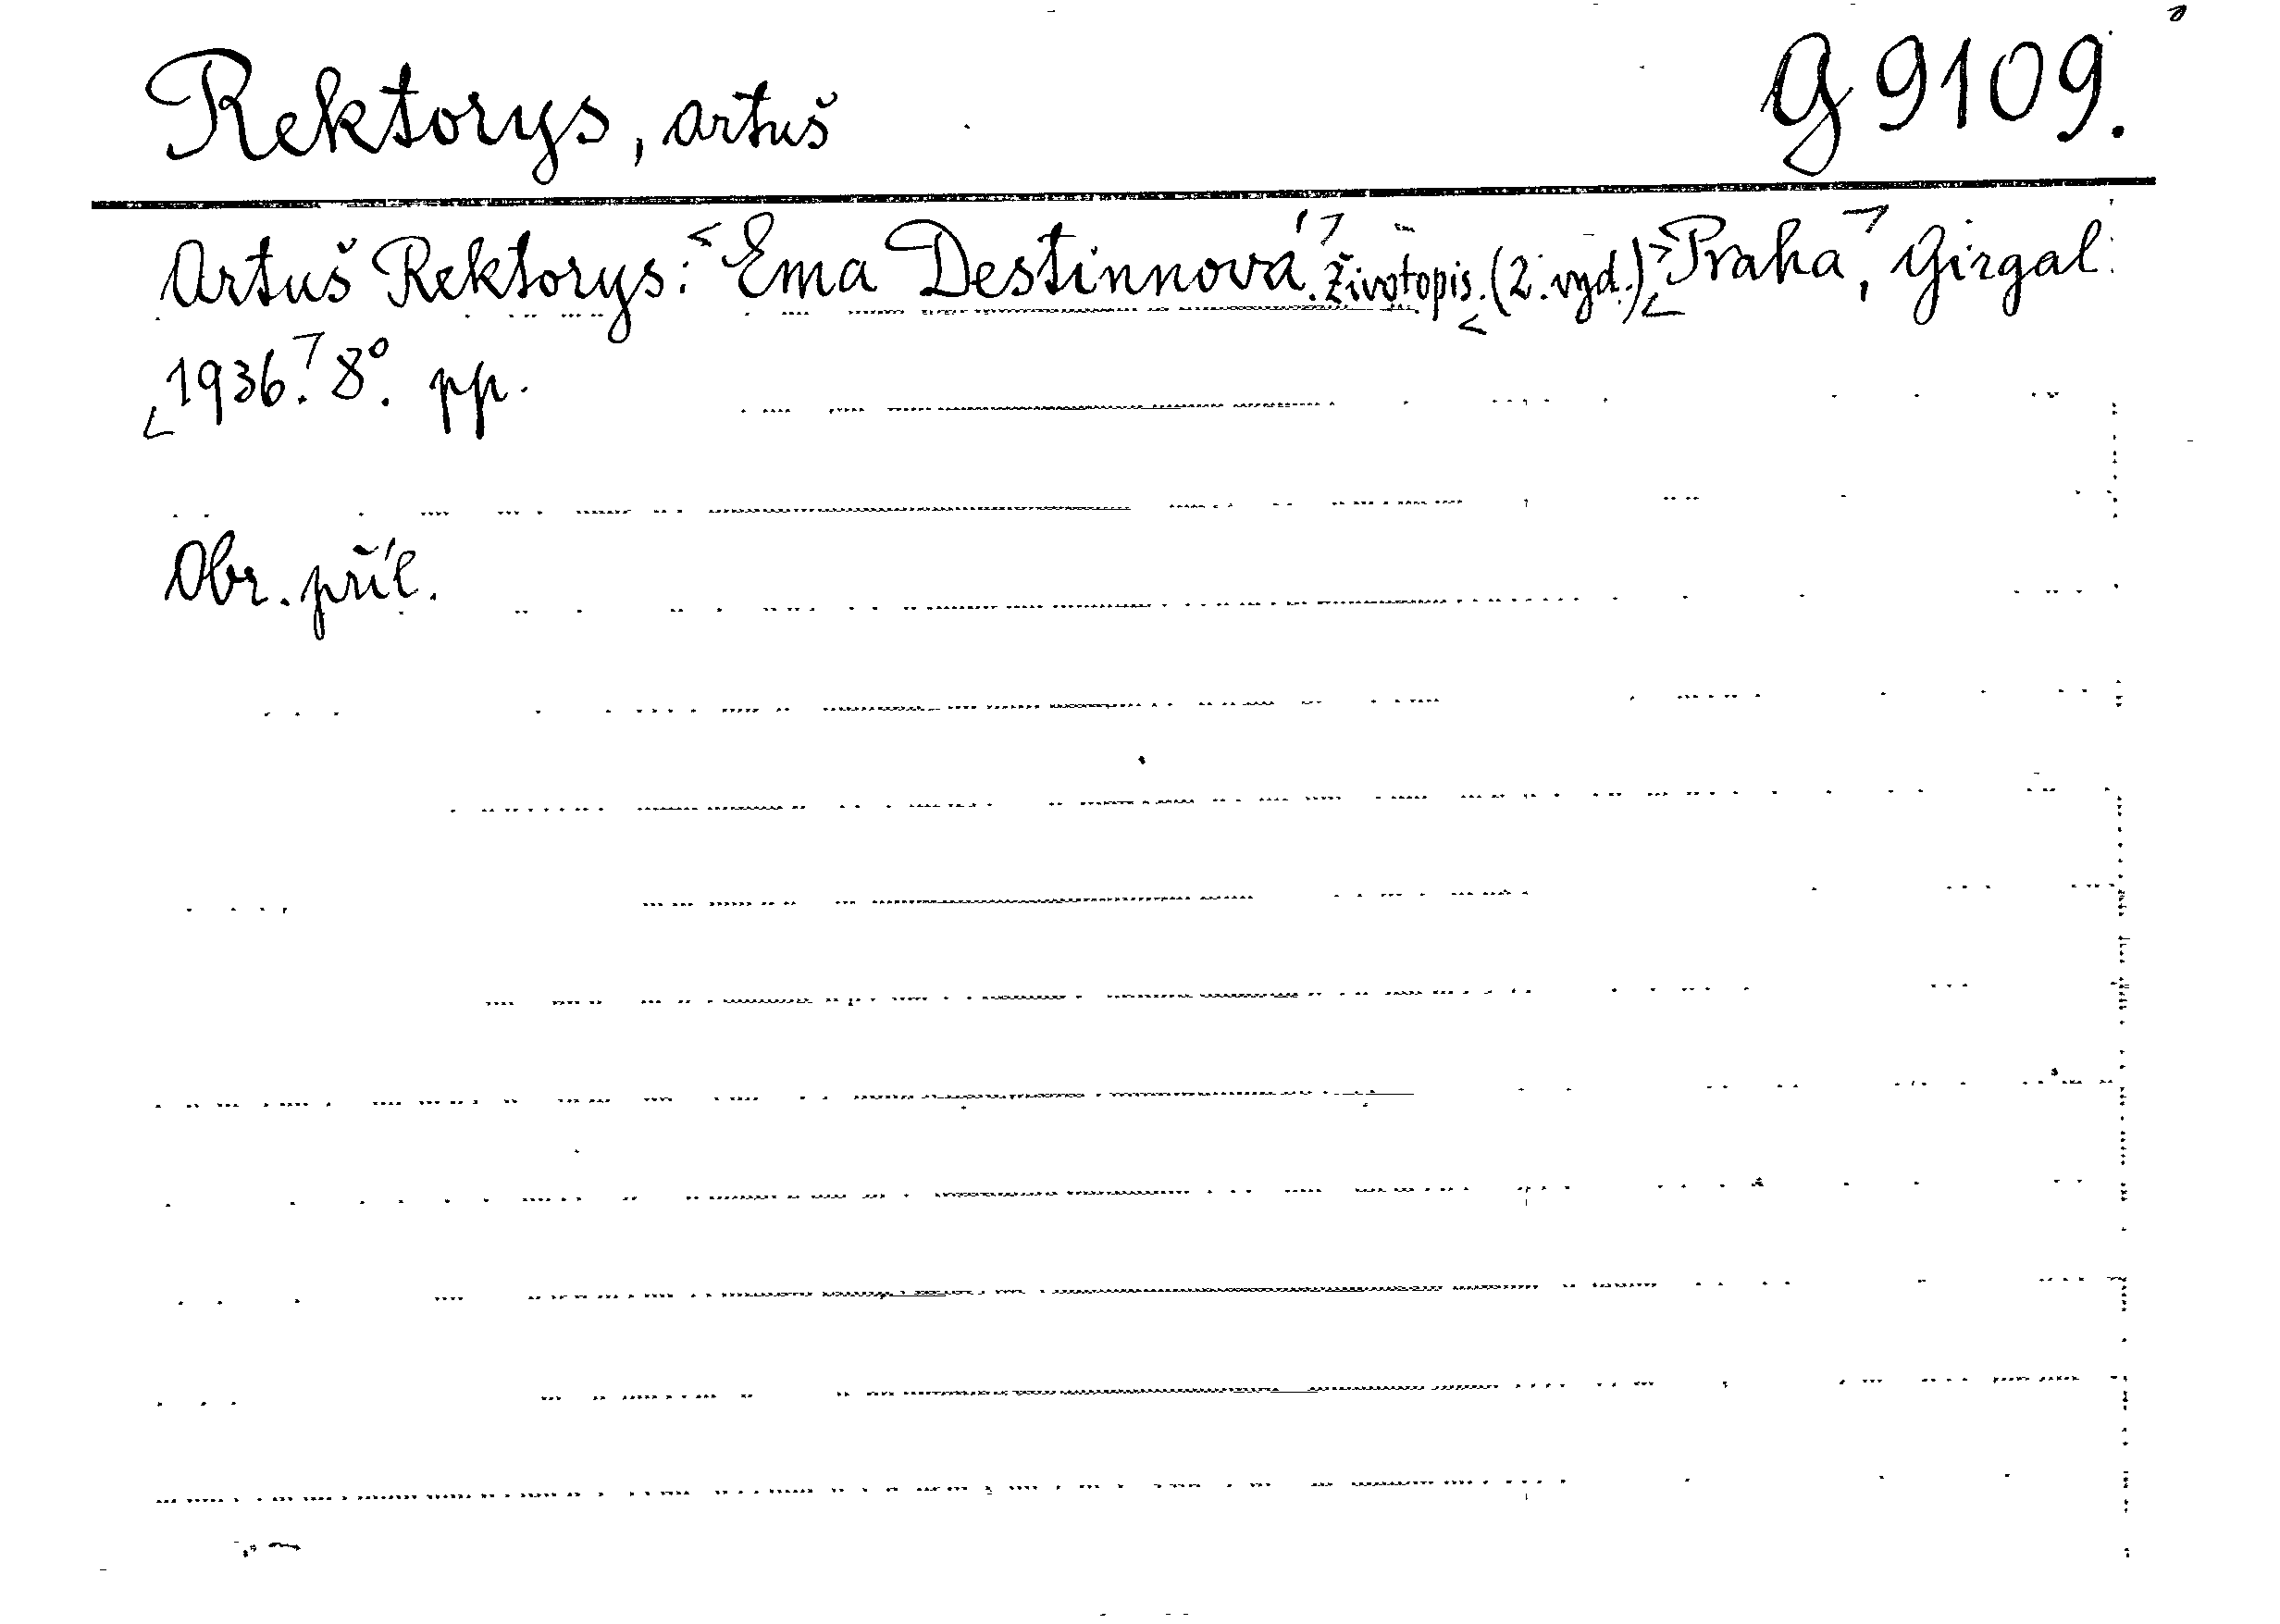 Rektorys, Artuš G 9109.
Artuš Rektorys: Ema Destinnová. Životopis. (2. vyd.) Praha, Girgal
1936. 8°. pp.
Obr. příl.